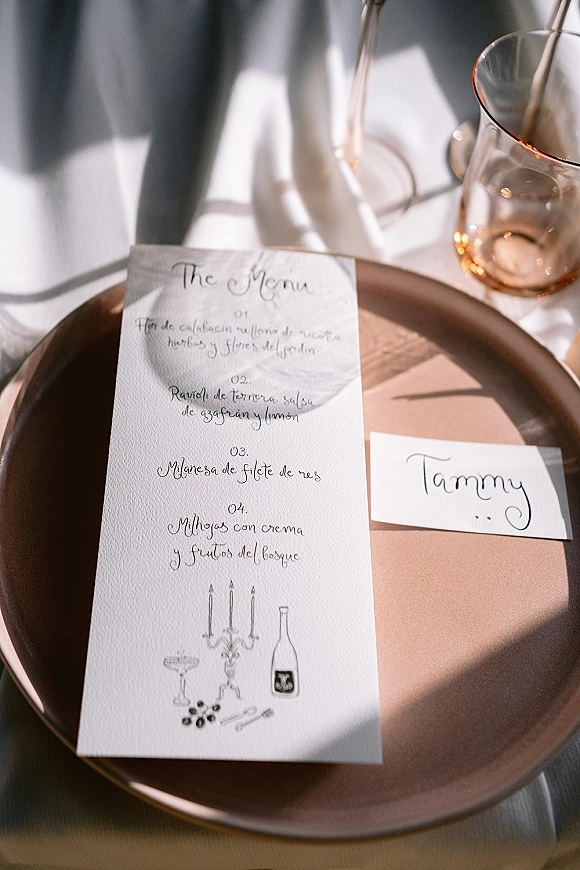 The Menu
01.
Flor de calabacin relleno de ricotta
hierbas y flores del jardin
02.
Ravioli de ternera salsa
de azafrán y limón
03.
Milanesa de filete de res
04.
Milhojas con crema
y frutos del bosque
Tammy